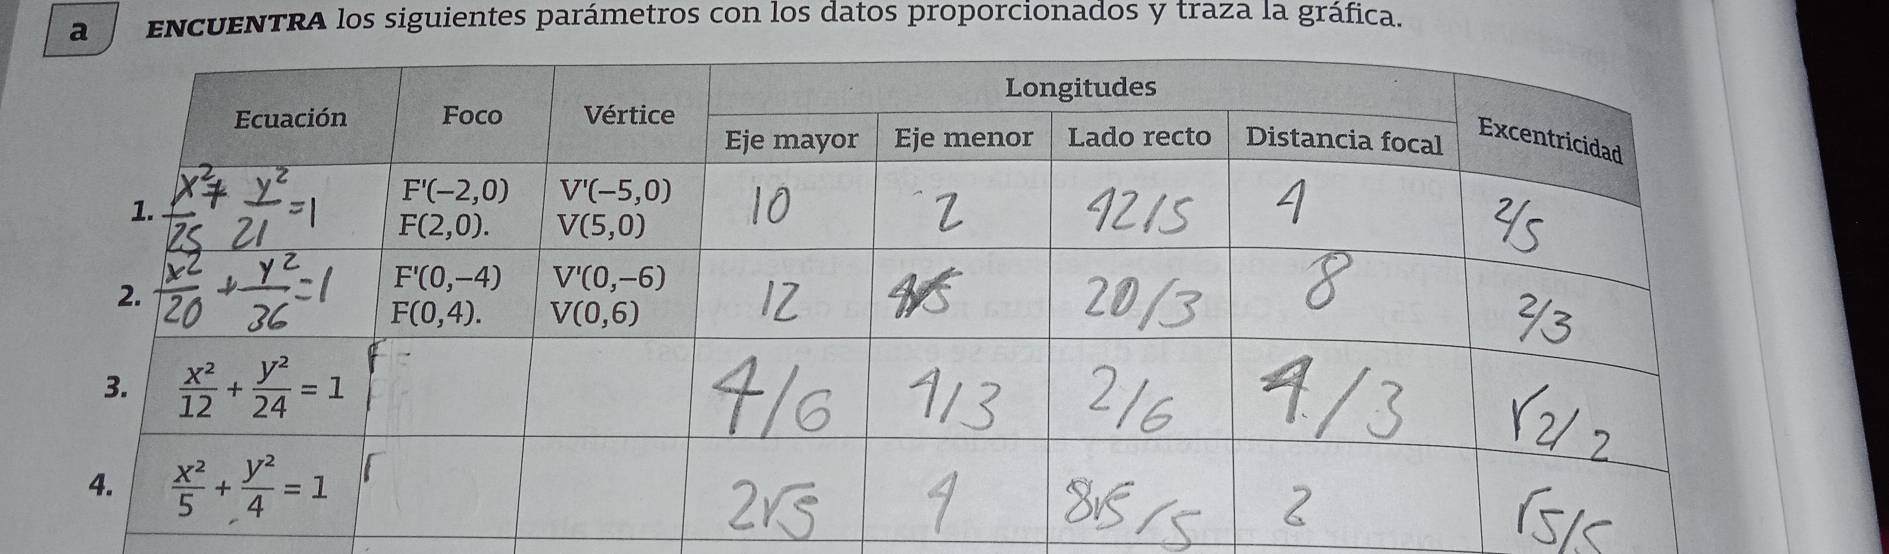 a ENCUENTRA los siguientes parámetros con los datos proporcionados y traza la gráfica.
Ecuación Foco Vértice Longitudes Excentricidad
Eje mayor Eje menor Lado recto Distancia focal
1. x²/25 + y²/21 = 1 F'(−2,0) V'(−5,0) 10 2 42/5 4 2/5
F(2,0). V(5,0)
2. x²/20 + y²/36 = 1 F'(0,−4) V'(0,−6) 12 4√5 20/3 8 2/3
F(0,4). V(0,6)
3. x²/12 + y²/24 = 1 F = 4/6 4/3 2/6 4/3 √2/2
4. x²/5 + y²/4 = 1 2√5 4 8√5/5 2 √5/5